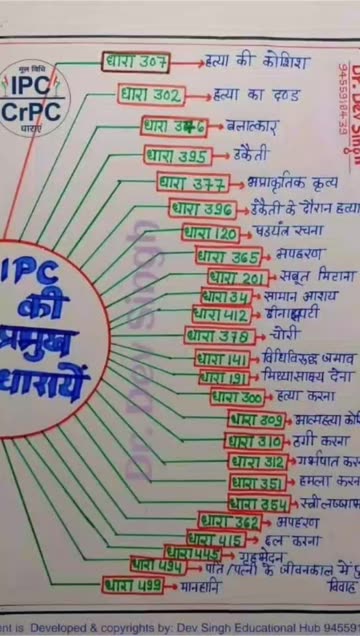 मूल विधि
IPC
CrPC
धारायें
Dr. Dev Singh
9455918439
IPC
की
प्रमुख
धारायें
धारा 307 हत्या की कोशिश
धारा 302 हत्या का दण्ड
धारा 376 बलात्कार
धारा 395 डकैती
धारा 377 अप्राकृतिक कृत्य
धारा 396 डकैती के दौरान हत्या
धारा 120 षडयंत्र रचना
धारा 365 अपहरण
धारा 201 सबूत मिटाना
धारा 34 सामान आशय
धारा 412 छीनाझपटी
धारा 378 चोरी
धारा 141 विधिविरुद्ध जमाव
धारा 191 मिथ्यासाक्ष्य देना
धारा 300 हत्या करना
धारा 309 आत्महत्या
धारा 310 ठगी करना
धारा 312 गर्भपात
धारा 351 हमला करना
धारा 354
धारा 362 अपहरण
धारा 415 छल करना
धारा 445 गृहभेदन
धारा 494 पति/पत्नी के जीवनकाल में
विवाह
धारा 499 मानहानि
Dr. Dev Singh
nt is Developed & copyrights by: Dev Singh Educational Hub 94559